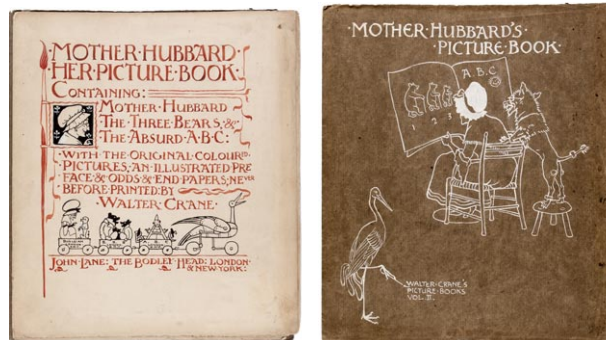 ·MOTHER·HUBBARD·
·HER·PICTURE·BOOK·
CONTAINING:
MOTHER·HUBBARD
THE·THREE·BEARS,·&
THE·ABSURD·A·B·C:
·WITH·THE·ORIGINAL·COLOURD.
PICTURES,·AN·ILLUSTRATED·PRE
FACE·&·ODDS·&·END·PAPERS,·NEVER
BEFORE·PRINTED·BY
·WALTER·CRANE·
JOHN·LANE: THE·BODLEY·HEAD: LONDON·
&·NEW·YORK:
·MOTHER·HUBBARD'S·
·PICTURE·BOOK·
A.B.C
1 2 3
WALTER·CRANE'S
PICTURE·BOOKS
VOL. II.